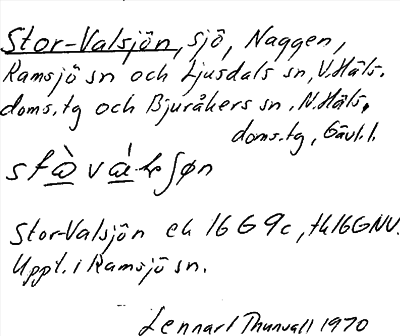 Stor-Valsjön, sjö, Naggen,
Ramsjö sn och Ljusdals sn, V. Häls.
doms.tg och Bjuråkers sn, N. Häls.
doms.tg, Gävl.l.
Stor-Valsjön ek 16 G 9c, tk 16G NV.
Uppt. i Ramsjö sn.
Lennart Thunvall 1970